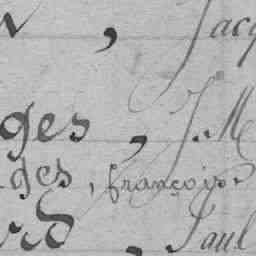 , Jacq
ges, J. M
ges, françois.
rd, Paul